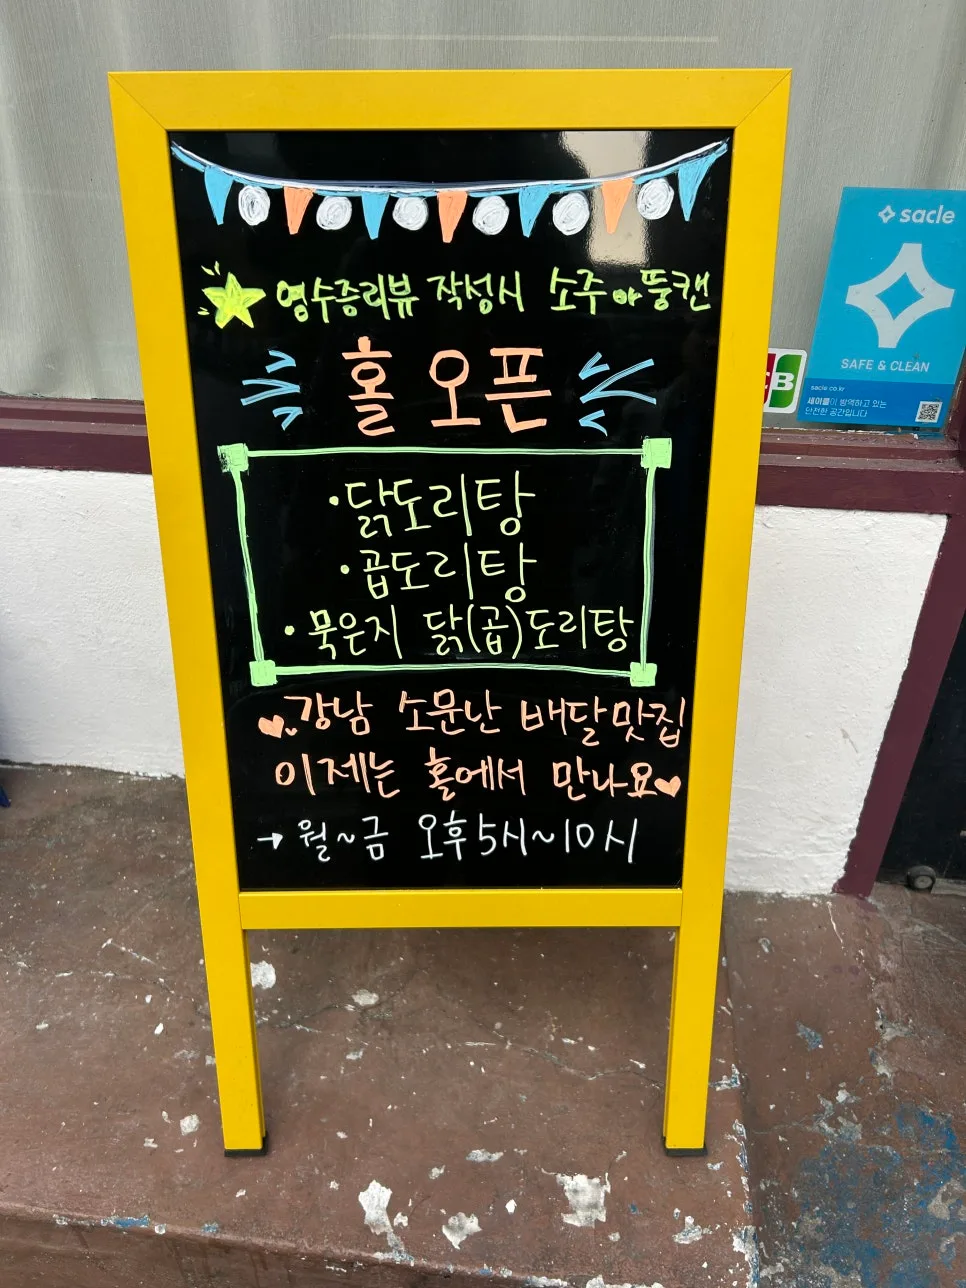 영수증리뷰 작성시 소주 or 뚱캔
홀 오픈
·닭도리탕
·곱도리탕
·묵은지 닭(곱)도리탕
강남 소문난 배달맛집
이제는 홀에서 만나요
→ 월~금 오후 5시~10시
sacle
SAFE & CLEAN
sacle.co.kr
세이클이 방역하고 있는
안전한 공간입니다
CB